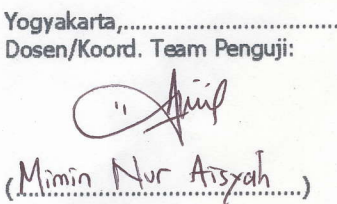 Yogyakarta,......................................
Dosen/Koord. Team Penguji:
(Mimin Nur Aisyah)